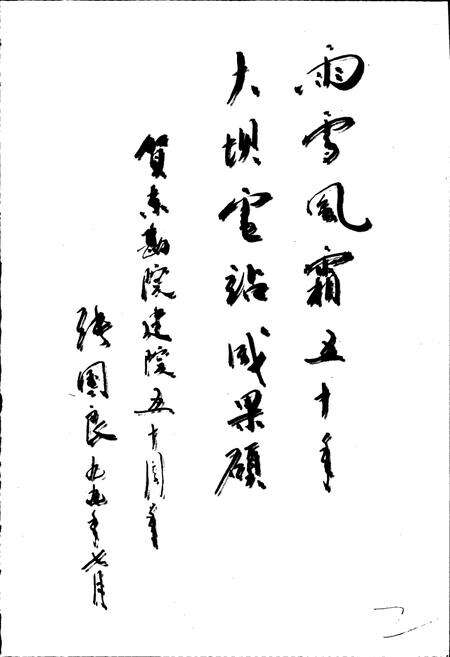 雨雪風霜五十年
大坝電站成果碩
賀东勘院建院五十周年
张國良九九年七月